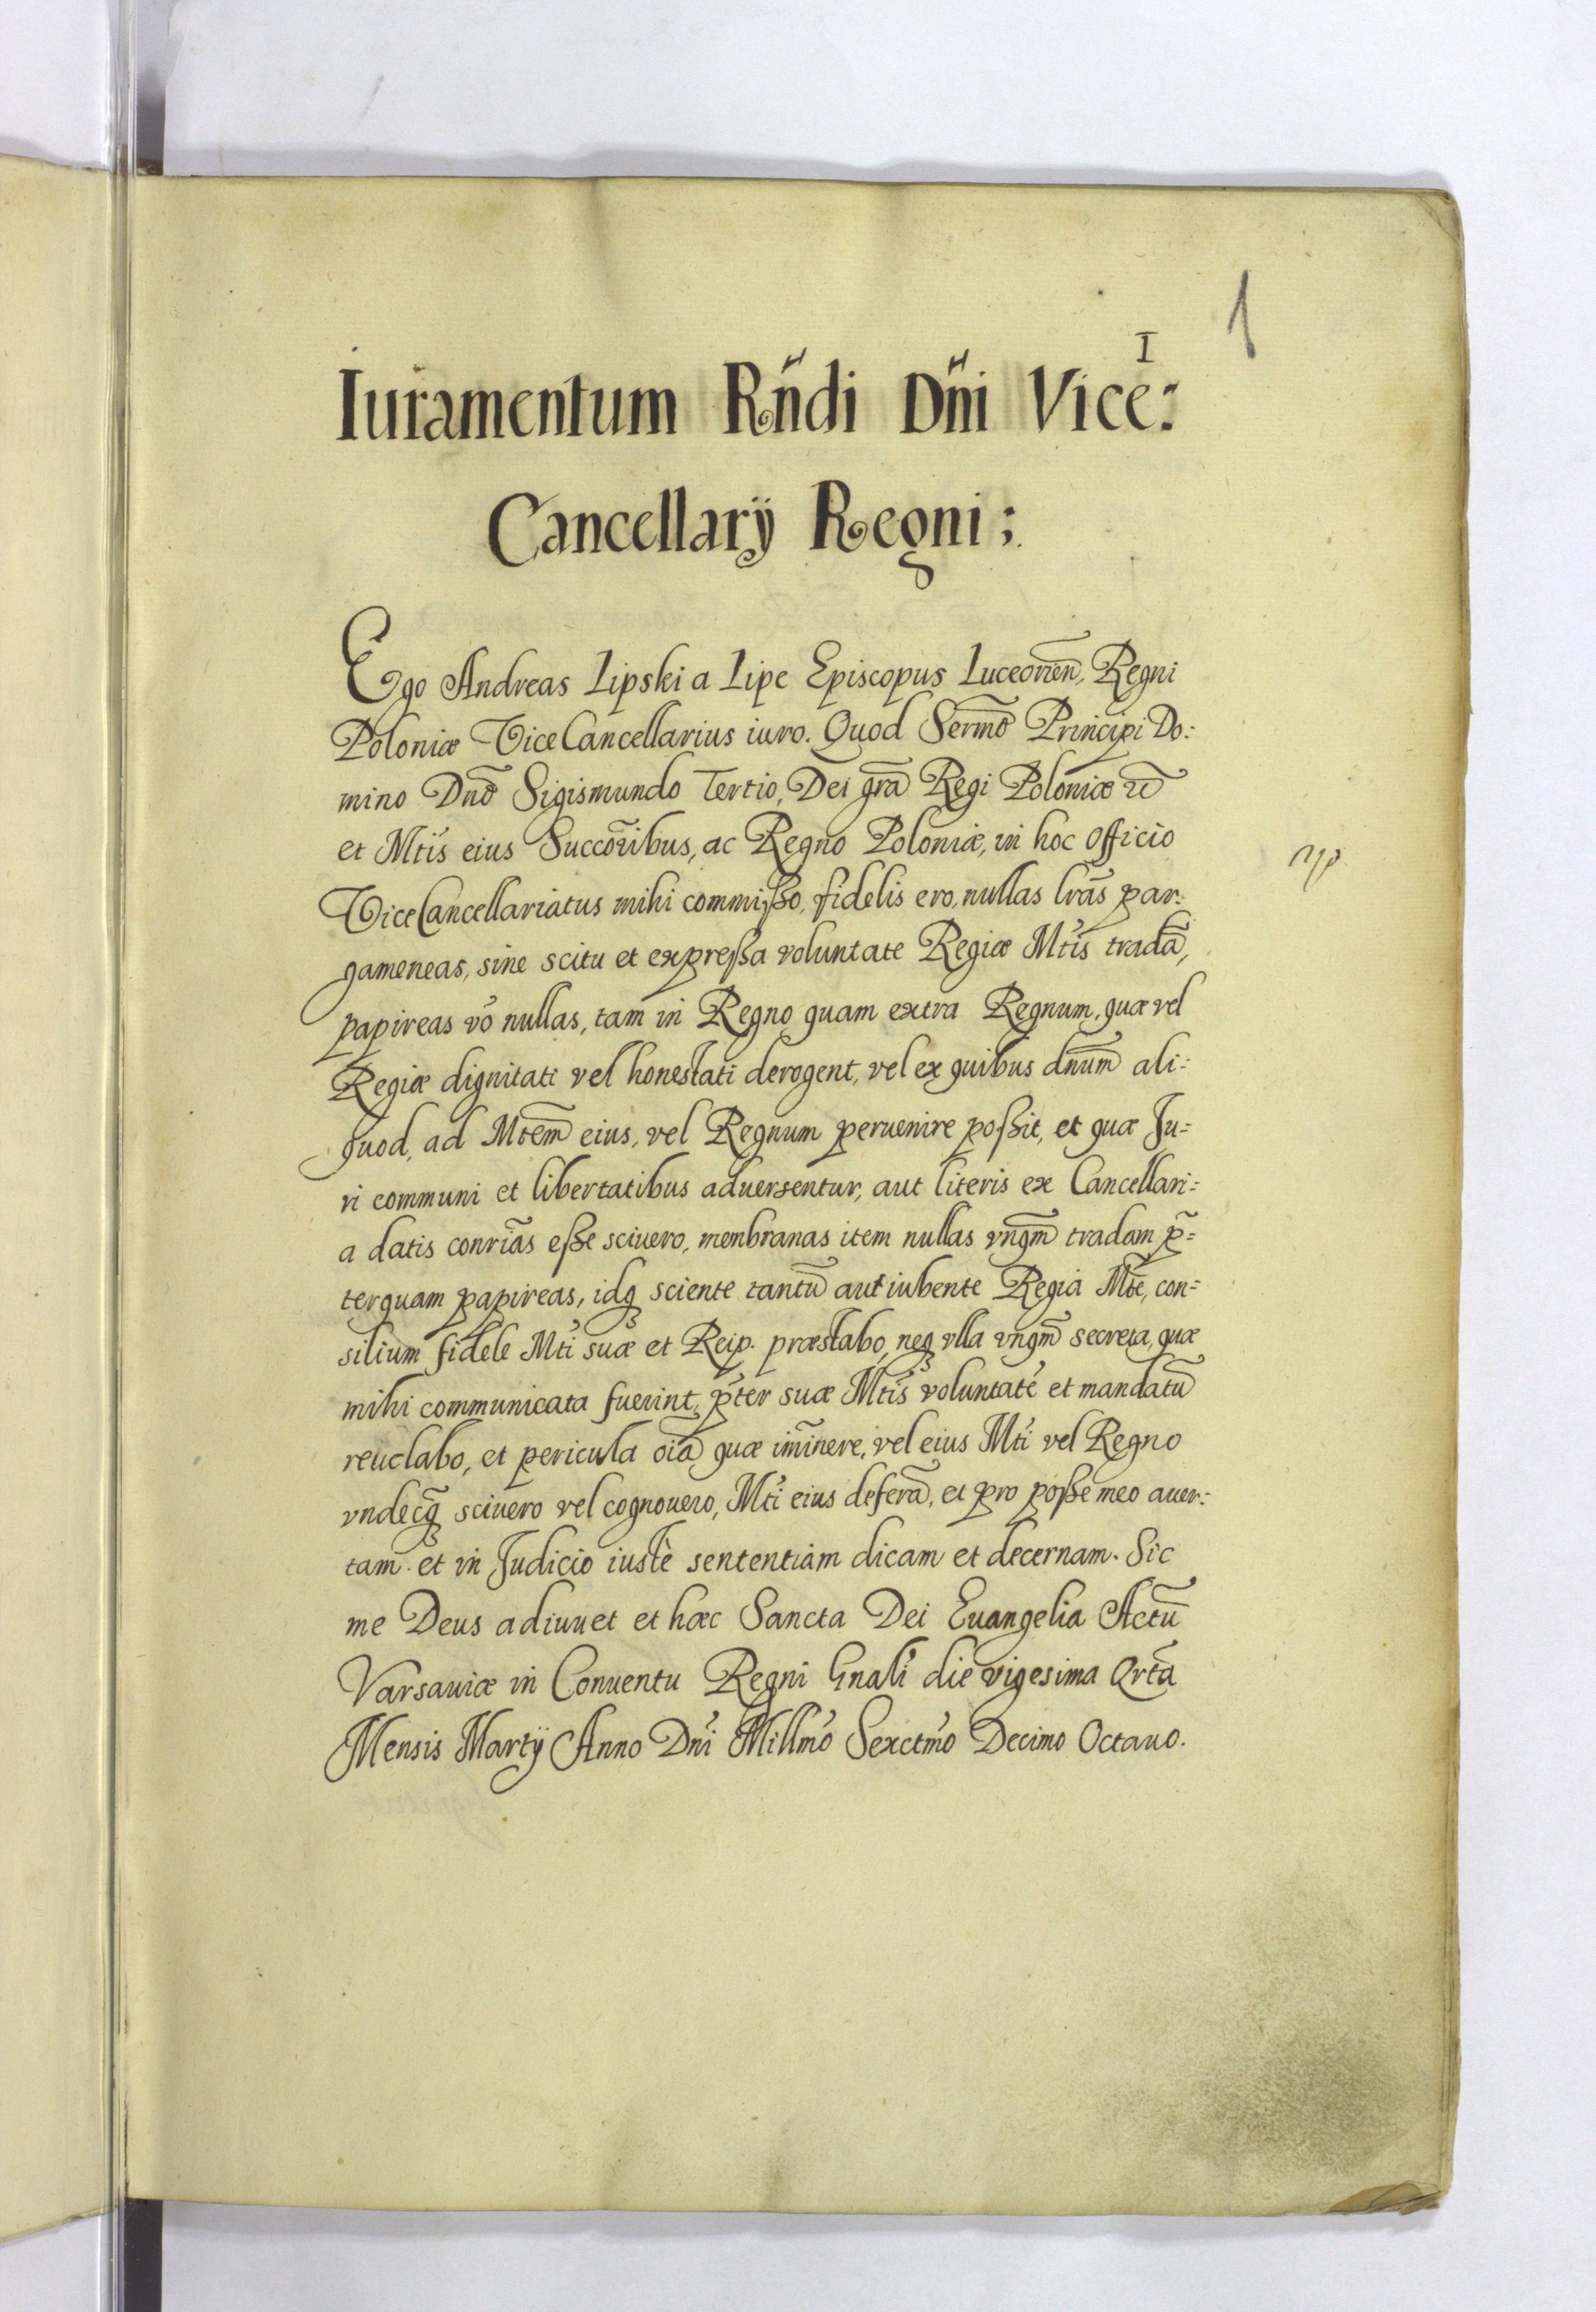 1
I
Iuramentum Rñdi Dñi Vice:
Cancellarÿ Regni;
Ego Andreas Lipski a Lipe Episcopus Luceorien̄, Regni
Poloniæ ViceCancellarius iuro. Quod Sermō Principi Do:
mino Dnō Sigismundo Tertio, Dei grā Regi Poloniæ
et Mtis eius Succoribus, ac Regno Poloniæ, in hoc officio
ViceCancellariatus mihi commißo, fidelis ero, nullas lrās par:
gameneas, sine scitu et expreßa voluntate Regiæ Mtis tradā,
papireas vo nullas, tam in Regno quam extra Regnum, quæ vel
Regiæ dignitati vel honestati derogent, vel ex quibus dnum ali:
quod, ad Mtem eius, vel Regnum peruenire poßit, et quæ Ju=
ri communi et libertatibus aduersentur, aut literis ex Cancellari=
a datis conriās eße sciuero, membranas item nullas vnqm̄ tradam p̄=
terquam papireas, idq3 sciente tantū aut iubente Regia Mte, con=
silium fidele Mti suæ et Reip. præstabo, neq3 vlla vnqm̄ secreta, quæ
mihi communicata fuerint, pter suæ Mtis voluntatē et mandatū
reuelabo, et pericula oīa quæ im̄inere, vel eius Mti vel Regno
vndecq3 sciuero vel cognouero, Mti eius deferā, et pro poße meo auer:
tam. et in Judicio iustè sententiam dicam et decernam. Sic
me Deus adiuuet et hæc Sancta Dei Euangelia Actū
Varsauiæ in Conuentu Regni Gnali die vigesima Qrtā
Mensis Martÿ Anno Dni Millmo Sexctmo Decimo Octauo.